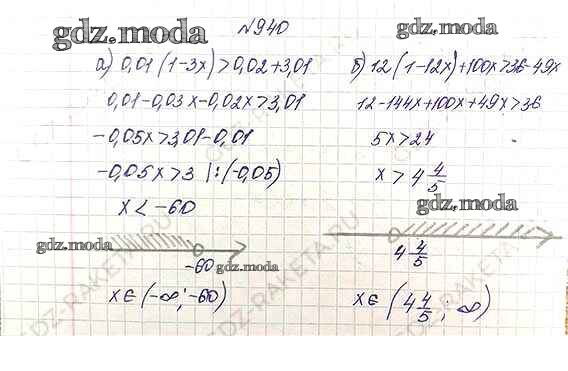 №940
gdz.moda
gdz.moda
а) 0,01 (1-3x) > 0,02+3,01
0,01-0,03x-0,02x>3,01
-0,05x>3,01-0,01
-0,05x>3 |:(-0,05)
x < -60
gdz.moda
-60
gdz.moda
x∈(-∞;-60)
б) 12 (1-12x)+100x>36-49x
12-144x+100x+49x>36
5x>24
x > 4 4/5
gdz.moda
4 4/5
x∈ (4 4/5 ; ∞)
GDZ-RAKETA.RU
GDZ-RAKETA.RU